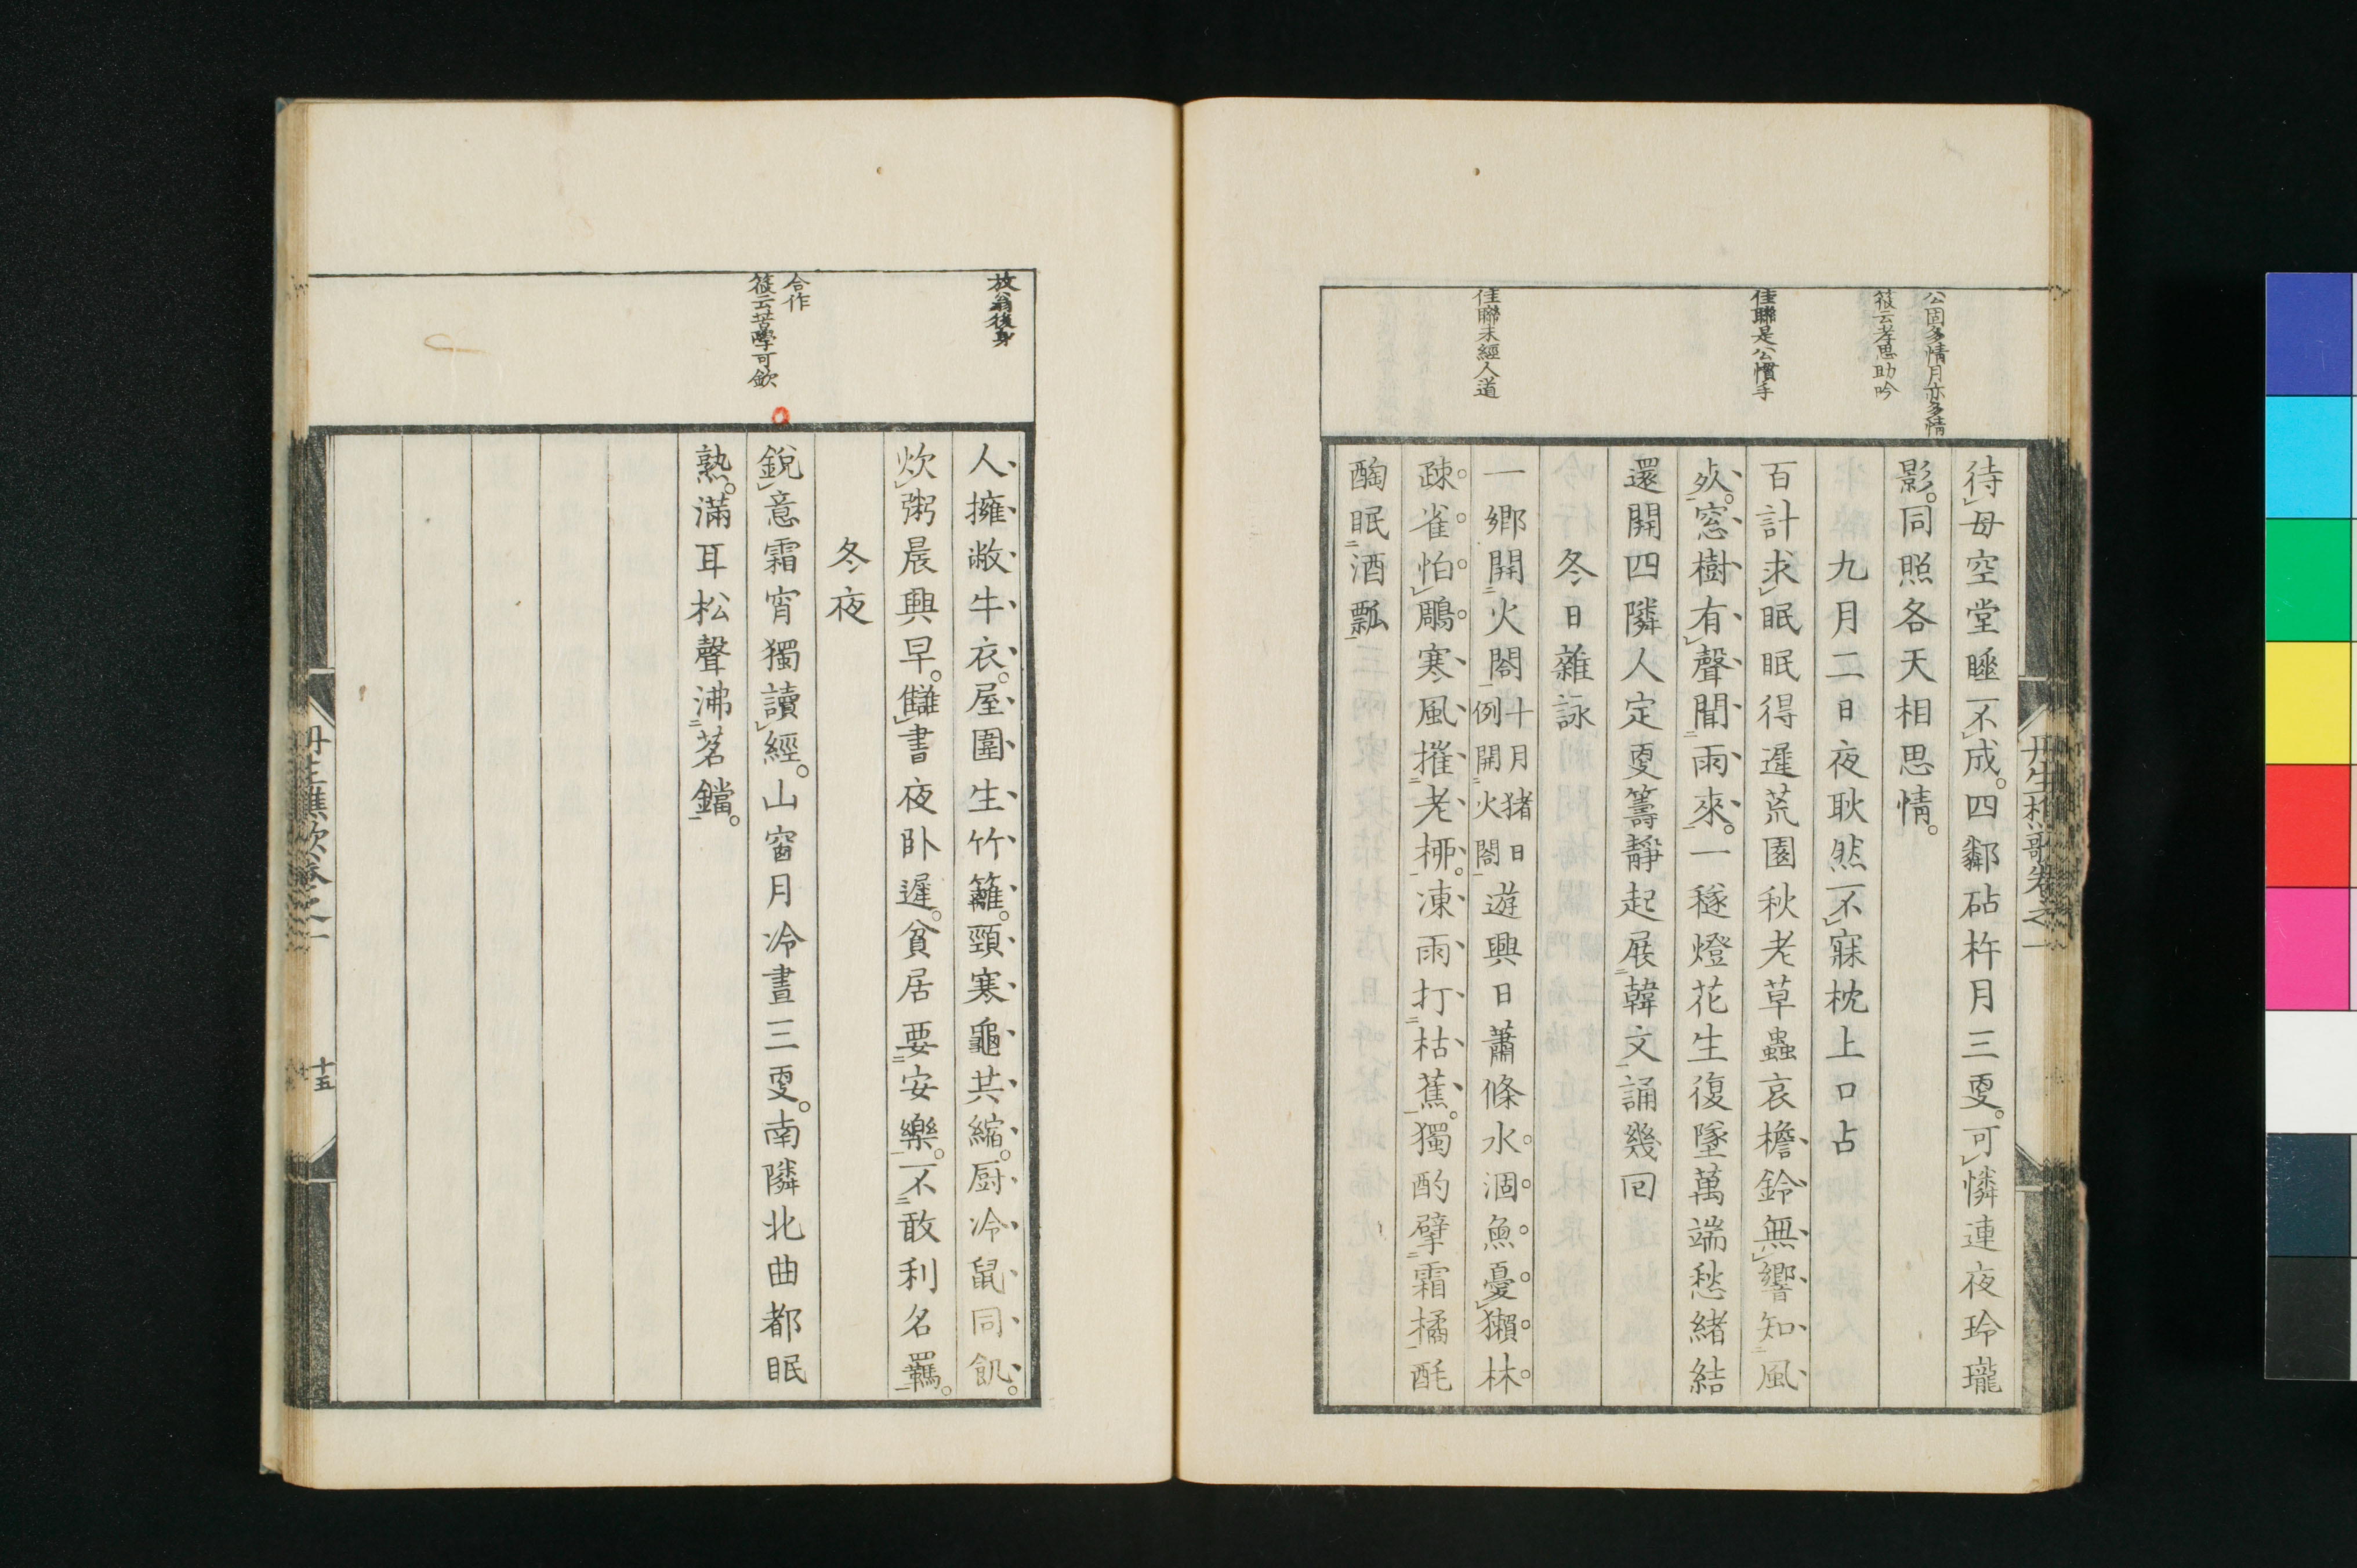 公固多情月亦多情
筱云孝思助吟
佳聯是公慣手
佳聯未經人道
待母空堂睡不成。四鄰砧杵月三更。可憐連夜玲瓏
影。同照各天相思情。
九月二日夜耿然不寐枕上口占
百計求眠眠得遲荒園秋老草蟲哀檐鈴無響知風
死。窓樹有聲聞雨來。一穟燈花生復墜萬端愁緒結
還開四隣人定更籌靜起展韓文誦幾回
冬日雜詠
一鄉開火閤十月猪日例開火閤遊興日蕭條水涸魚憂獺林
疎雀怕鵰寒風摧老柳。凍雨打枯蕉。獨酌擘霜橘酕
醄眠酒瓢
丹生樵歌卷之一
放翁後身
合作
筱云苦學可欽
人擁敝牛衣。屋圍生竹籬。頸寒龜共縮。厨冷鼠同飢。
炊粥晨興早。讎書夜卧遲。貧居要安樂。不敢利名羈。
冬夜
銳意霜宵獨讀經。山窗月冷晝三更。南隣北曲都眠
熟。滿耳松聲沸茗鐺。
丹生樵歌卷之一
十五